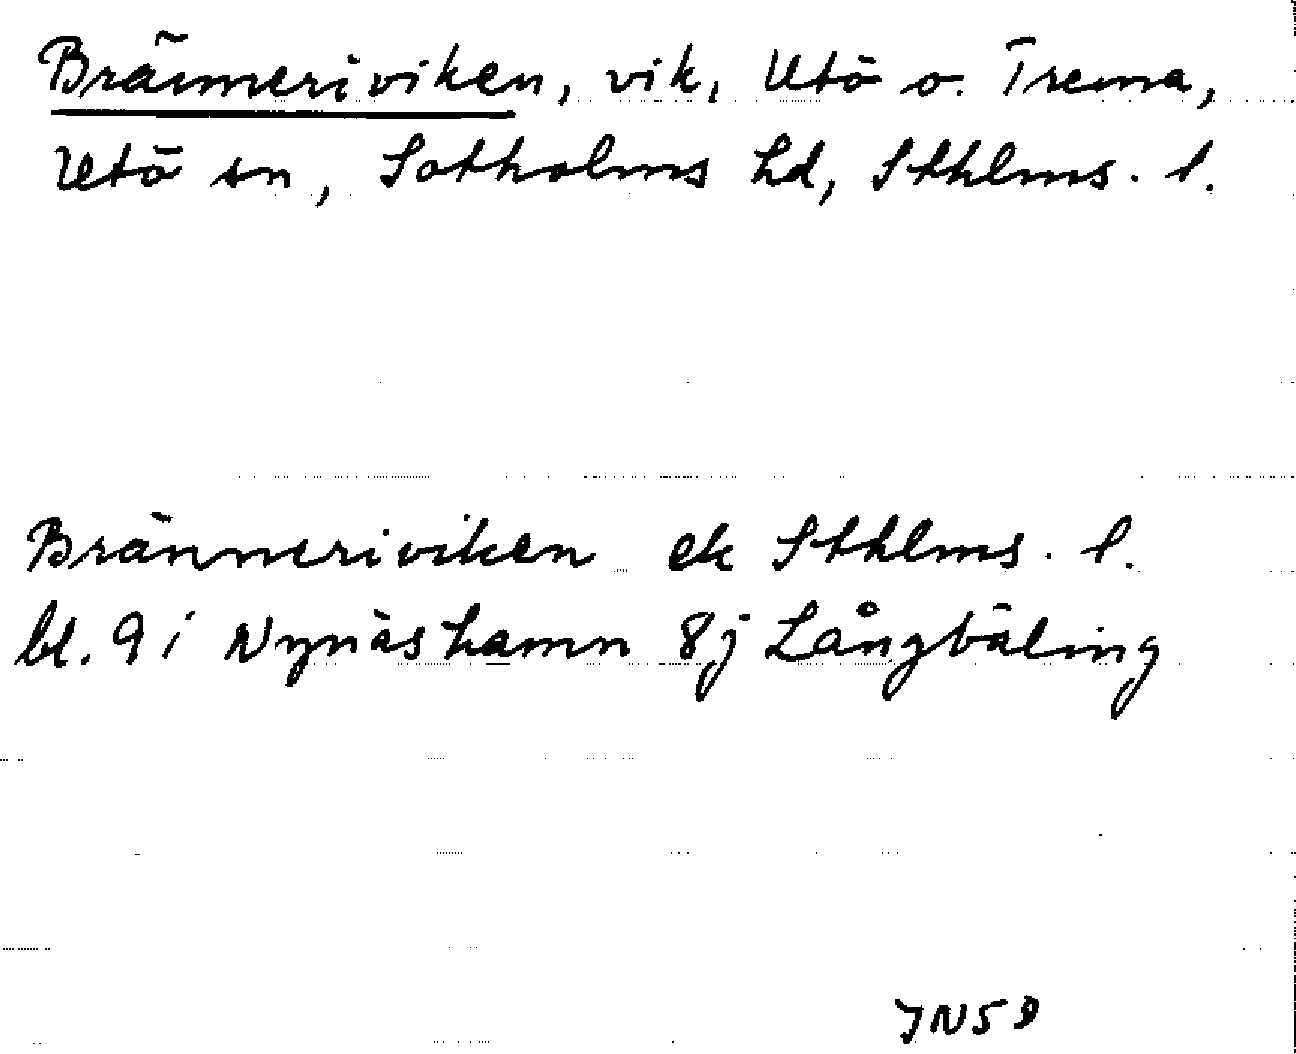 Bränneriviken, vik, Utö o. Trema,
Utö sn, Sotholms hd, Sthlms. l.
Bränneriviken ek Sthlms. l.
bl. 9 i Nynäshamn 8j Långbäling
JN59